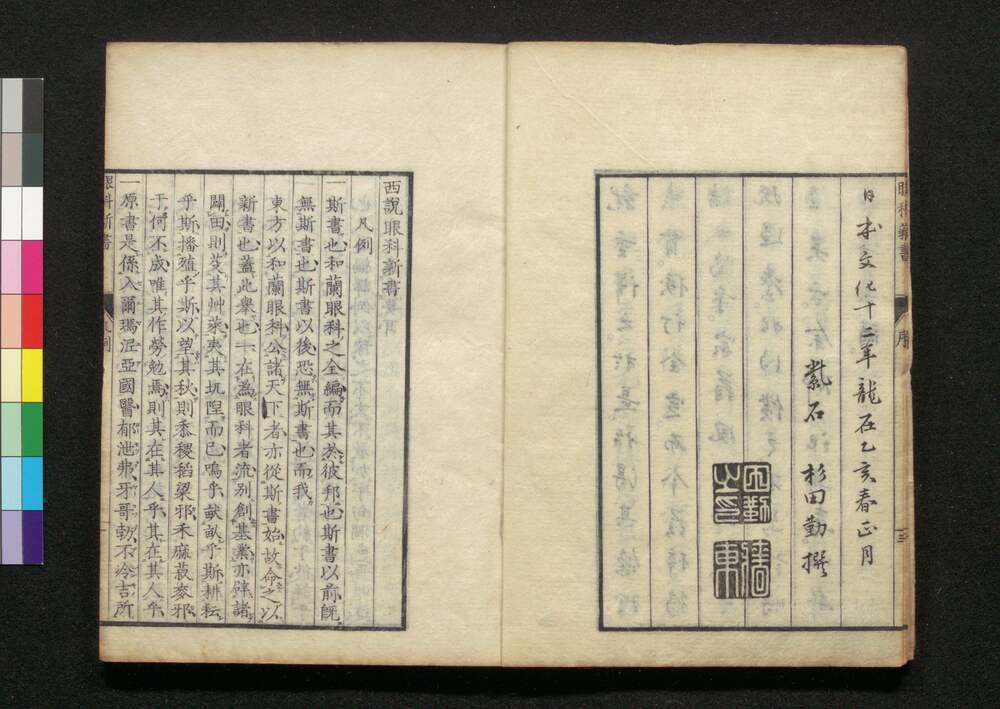 日本文化十二年龍在乙亥春正月
紫石 杉田勤撰
序
三
西説眼科新書
凡例
一斯書也和蘭眼科之全編而其於彼邦也斯書以前既
無斯書也斯書以後恐無斯書也而我
東方以和蘭眼科公諸天下者亦從斯書始故命之以
新書也蓋此擧也一在爲眼科者流別創基業亦譬諸
闢田則芟其艸萊夷其坑陧而已嗚乎畎畝乎斯耕耘
乎斯播殖乎斯以望其秋則黍稷稻粱邪禾麻菽麥邪
于何不成唯其作勞勉焉則其在其人乎其在其人乎
一原書是係入爾瑪泥亞國醫郁池弗牙哥歇不冷吉所
眼科新書
凡例
一